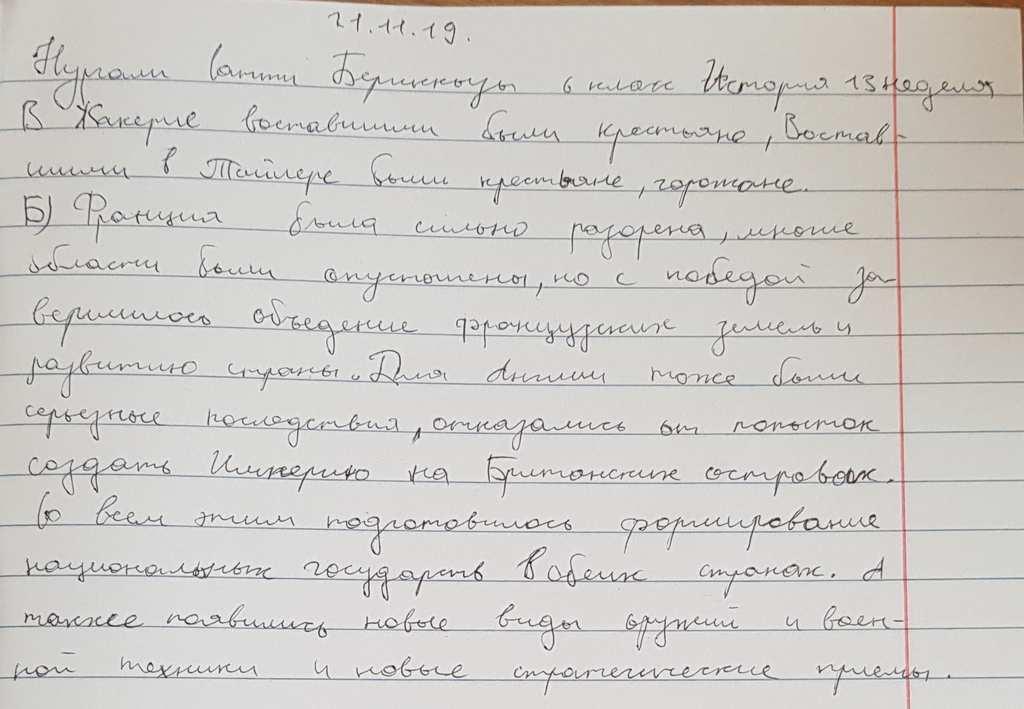 21.11.19.
Нургали Бериккызы 6 класс История 13 неделя
В Жакерие воставшими были крестьяне, Востав-
шими в Тайлере были крестьяне, горожане.
Б) Франция была сильно разорена, многие
области были опустошены, но с победой за-
вершилось объедение французских земель и
развитию страны. Для Англии тоже были
серьезные последствия, отказались от попыток
создать Империю на Британских островах.
Со всем этим подготовилось формирование
национальных государств в обеих странах. А
также появились новые виды оружий и воен-
ной техники и новые стратегические приемы.